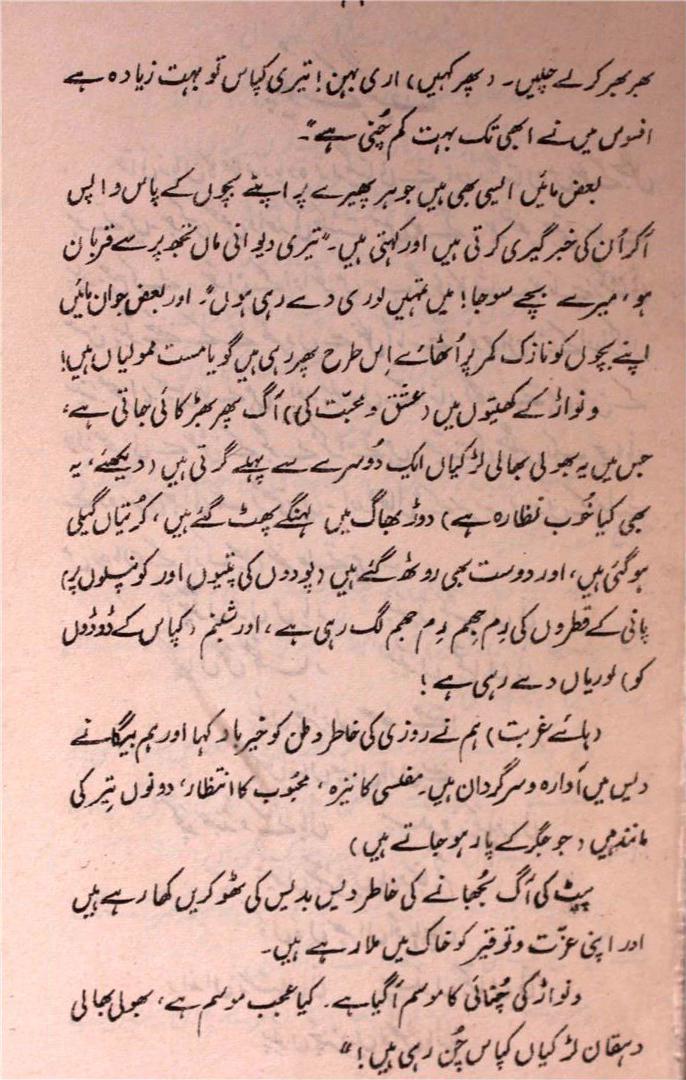 بھر بھر کر لے چلیں۔ (پھر کہیں) اری بہن! تیری کپاس تو بہت زیادہ ہے
افسوس میں نے ابھی تک بہت کم چُنی ہے"۔
بعض مائیں ایسی بھی ہیں جو ہر پھیرے پر اپنے بچوں کے پاس واپس
آکر اُن کی خبر گیری کرتی ہیں اور کہتی ہیں۔ "تیری دیوانی ماں تجھ پر سے قربان
ہو، میرے بچے سو جا! میں تمہیں لوری دے رہی ہوں"۔ اور بعض جوان مائیں
اپنے بچوں کو نازک کمر پر اُٹھائے اِس طرح پھر رہی ہیں گویا مست ممولیاں ہیں!
ونواڑ کے کھیتوں میں (عشق و محبّت کی) آگ پھر بھڑکائی جاتی ہے،
جس میں یہ بھولی بھالی لڑکیاں ایک دُوسرے سے پہلے گرتی ہیں (دیکھئے، یہ
بھی کیا خُوب نظارہ ہے) دوڑ بھاگ میں لہنگے پھٹ گئے ہیں، کُرتیاں گیلی
ہو گئی ہیں، اور دوست بھی روٹھ گئے ہیں (پودوں کی پتیوں اور کونپلوں پر)
پانی کے قطروں کی رِم جھم رِم جھم لگ رہی ہے، اور شبنم (کپاس کے ڈوڈوں
کو) لوریاں دے رہی ہے!
(ہائے غربت) ہم نے روزی کی خاطر وطن کو خیرباد کہا اور ہم بیگانے
دیس میں آوارہ و سرگرداں ہیں۔ مفلسی کا نیزہ، محبُوب کا انتظار، دونوں تیر کی
مانند ہیں (جو جگر کے پار ہو جاتے ہیں)
پیٹ کی آگ بُجھانے کی خاطر دیس بدیس کی ٹھوکریں کھا رہے ہیں
اور اپنی عزّت و توقیر کو خاک میں ملا رہے ہیں۔
ونواڑ کی چُنائی کا موسم آگیا ہے۔ کیا عجب موسم ہے، بھولی بھالی
دہقان لڑکیاں کپاس چُن رہی ہیں!"